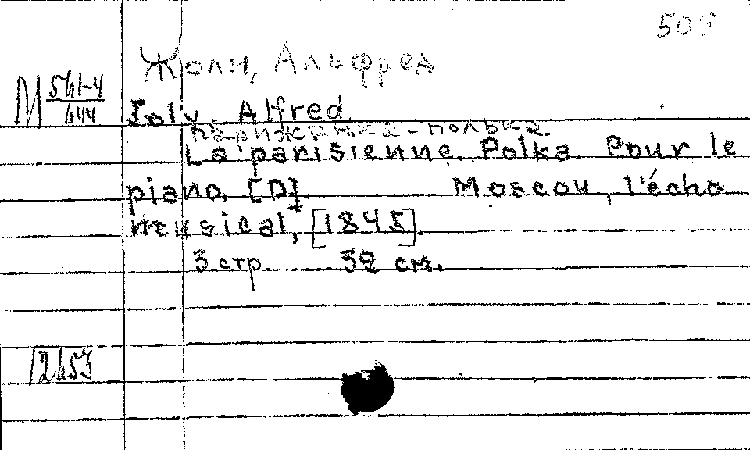 Жоли, Альфред
М 561-4/644
Joly, Alfred
Парижанка-полька
La parisienne. Polka. Pour le
piano. [D] Moscou, l'écho
musical, [1845].
3 стр. 32 см.
12653